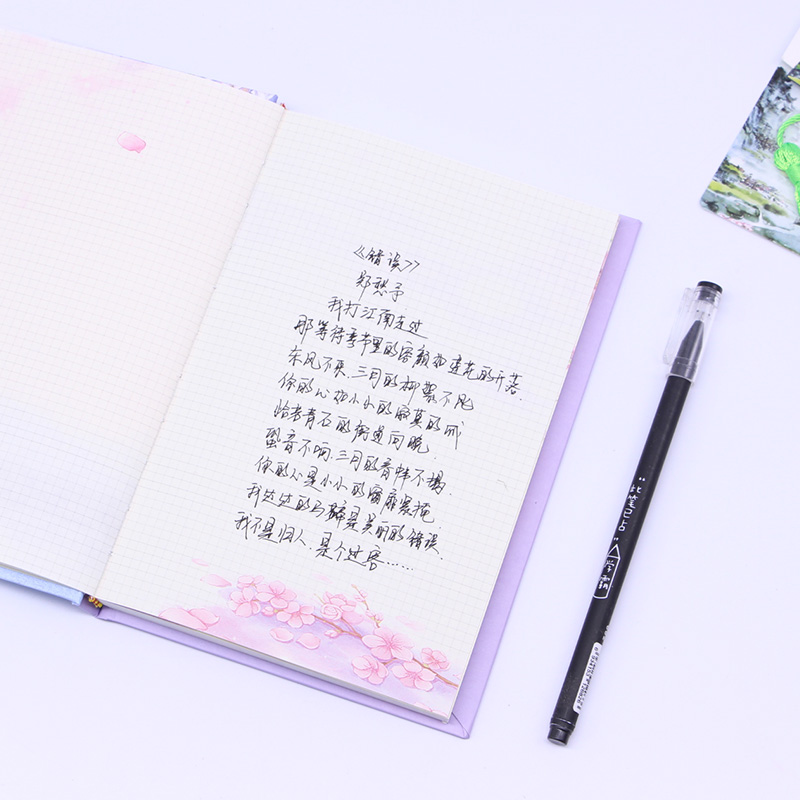 《错误》
郑愁予
我打江南走过
那等待季节里的容颜如莲花的开落.
东风不来.三月的柳絮不飞
你的心如小小的寂寞的城
恰若青石的街道向晚.
跫音不响.三月的春帷不揭.
你的心是小小的窗扉紧掩.
我达达的马蹄是美丽的错误.
我不是归人.是个过客……
"此笔已占"
学霸